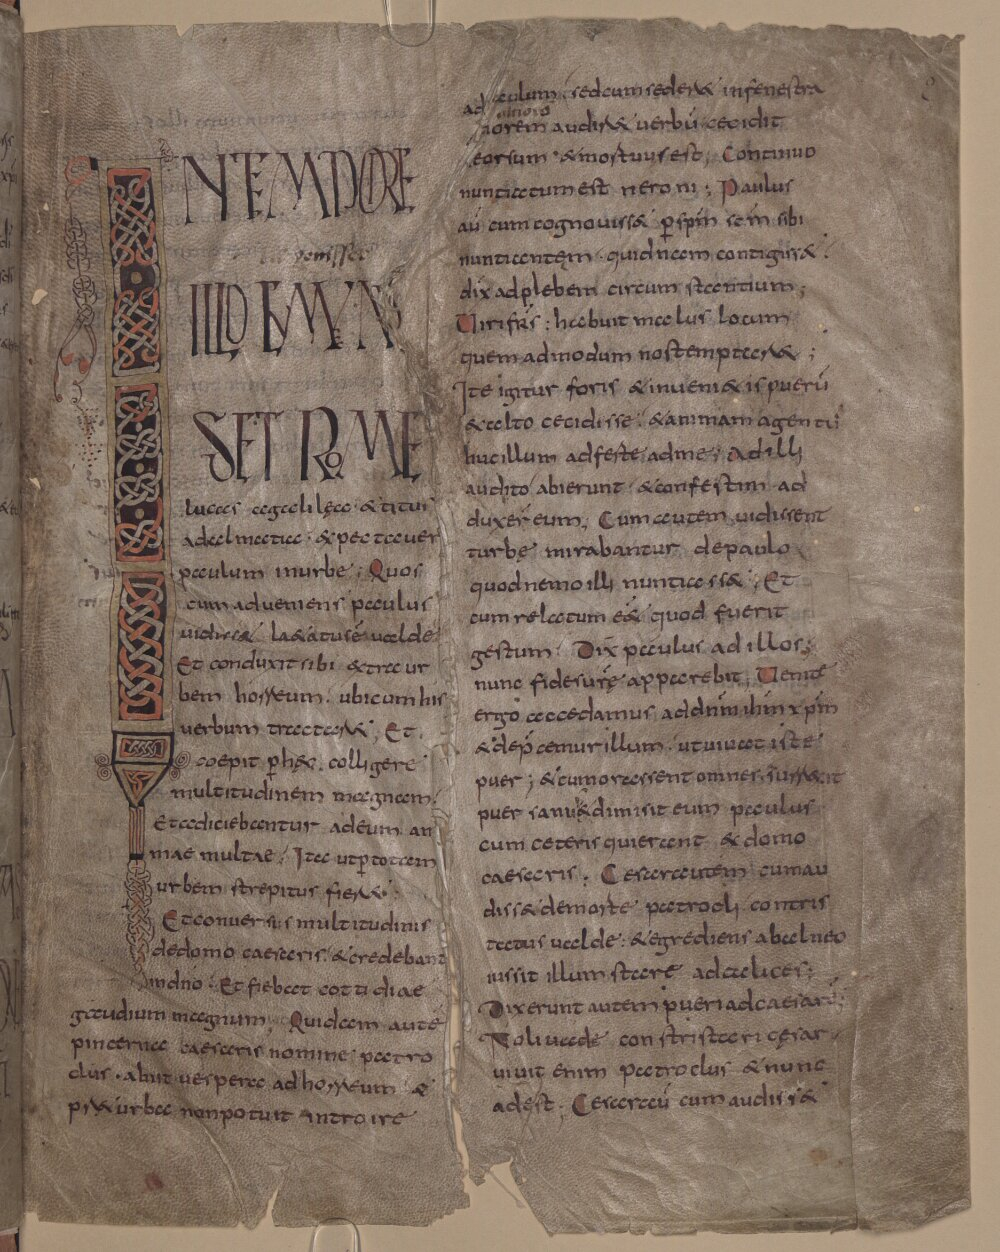 IN TEMPORE
ILLO EUM UENIS
SET ROMĘ
lucas agalilęa & titus
adalmatia & expectauer
paulum in urbe; Quos
cum adueniens paulus
uidiss& la&atus ē ualde
Et conduxit sibi extra ur
bem horreum ubi cum his
uerbum tractar&; Et
coepit p̄ hęc colligere
multitudinem magnam.
Et adiciebantur adeum an
imae multae; Ita ut p totam
urbem strepitus fier&.
Et conuersus multitudinis
de domo caesaris & credebant
in dn̄o. Et fiebat cottidiae
gaudium magnum. Quidam autē
pincerna caesaris nomine patro
clus. abiit uespera ad horreum &
prae turba non potuit introire
ad paulum. sed cum seder& in fenestra
audir& uerbū cecidit
deorsum & mortuus est; Continuo
nuntiatum est neroni; Paulus
aū cum cognouiss& p̄ spm̄ scm̄ sibi
nuntiantem quidnam contigiss&.
dix ad plebem circum stantium;
Uiri frs̄; habuit malus locum
quem admodum nos temptar&;
Ite igitur foris & inueni&is puerū
& alto cecidisse. & animam agentē
huc illum adferte ad me; Ad illi
audito abierunt & confestim ad
duxer̄ eum; Cum autem uidissent
turbę mirabantur de paulo
quod nemo illi nuntiass&; Et
cum relatum e&̄ quod fuerit
gestum. Dix paulus ad illos;
nunc fides urę apparebit; Uenitę
ergo accedamus ad dnm̄ ihm̄ xpm̄
& dep̄cemur illum. ut uiuat iste
puer; & cum orassent omnes. surrexit
puer sanus & dimisit eum paulus
cum ceteris qui erant & domo
caesaris; Cesar autem cum au
diss& de morte patrocli contris
tatus ualde. & egrediens abalneo
iussit illum stare ad calices;
Dixerunt autem pueri ad caesarē;
Noli uade constristari cęsar
uiuit enim patroclus & nunc
adest; Cesar aū cum audiss&